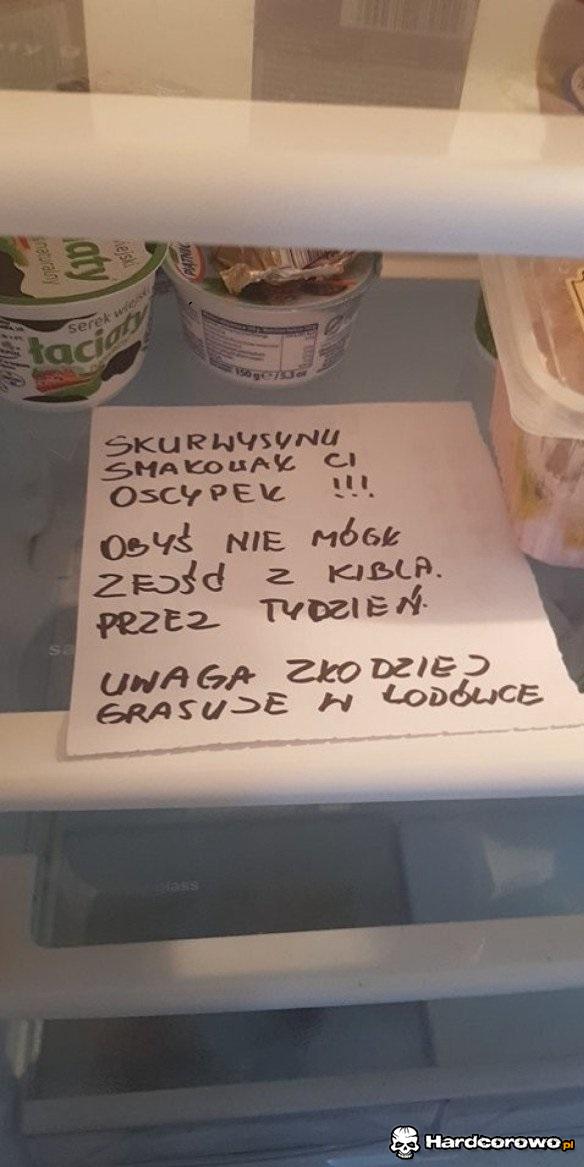 naturalny
wiejski
aty
serek wiejski
łaciaty
PIĄTNICA
150 g ℮ / 5.3 oz
SKURWYSYNU
SMAKOWAŁ CI
OSCYPEK !!!
OBYŚ NIE MÓGŁ
ZEJŚĆ Z KIBLA.
PRZEZ TYDZIEŃ.
UWAGA ZŁODZIEJ
GRASUJE W LODÓWCE
sa
glass
Hardcorowo.pl